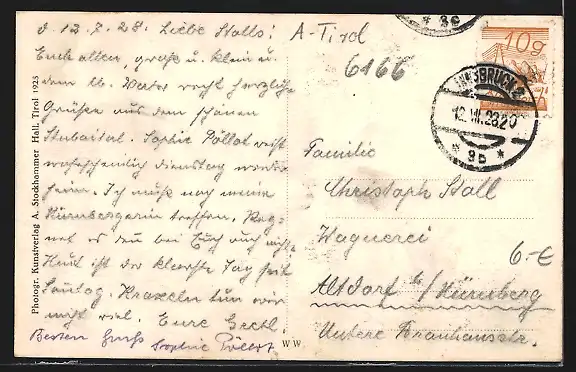 d. 12.7.28. Liebe Stalls!
Euch allen, groß u. klein u.
dem lb. Vater recht herzliche
Grüße aus dem schönen
Stubaital. Sophie Pöllot reist
wahrscheinlich Dienstag wieder
heim. Ich muß noch meine
Nürnbergerin treffen. Reg-
net es denn bei Euch auch nicht?
Heut ist der klarste Tag seit
Sonntag. Kraxeln tun wir
nicht viel. Eure Gretl.
Besten Gruß Sophie Pöllot
A-Tirol
6166
10g
INNSBRUCK 2
12.VII.28 20
* 9b *
* 3c
Familie
Christoph Stall
Wagnerei
6.-E
Altdorf b/Nürnberg
Untere Brauhausstr.
WW
Photogr. Kunstverlag A. Stockhammer Hall, Tirol 1925